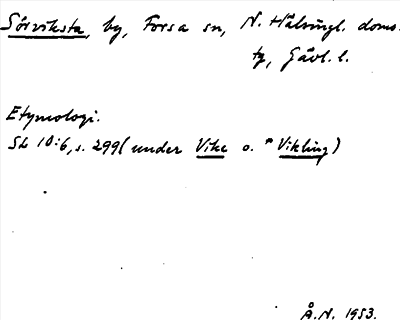 Sörviksta, by, Forsa sn, N. Hälsingl. doms.
tg, Gävl. l.
Etymologi.
SL 10:6, s. 299 (under Vika o. *Vikling)
Å.N. 1953.